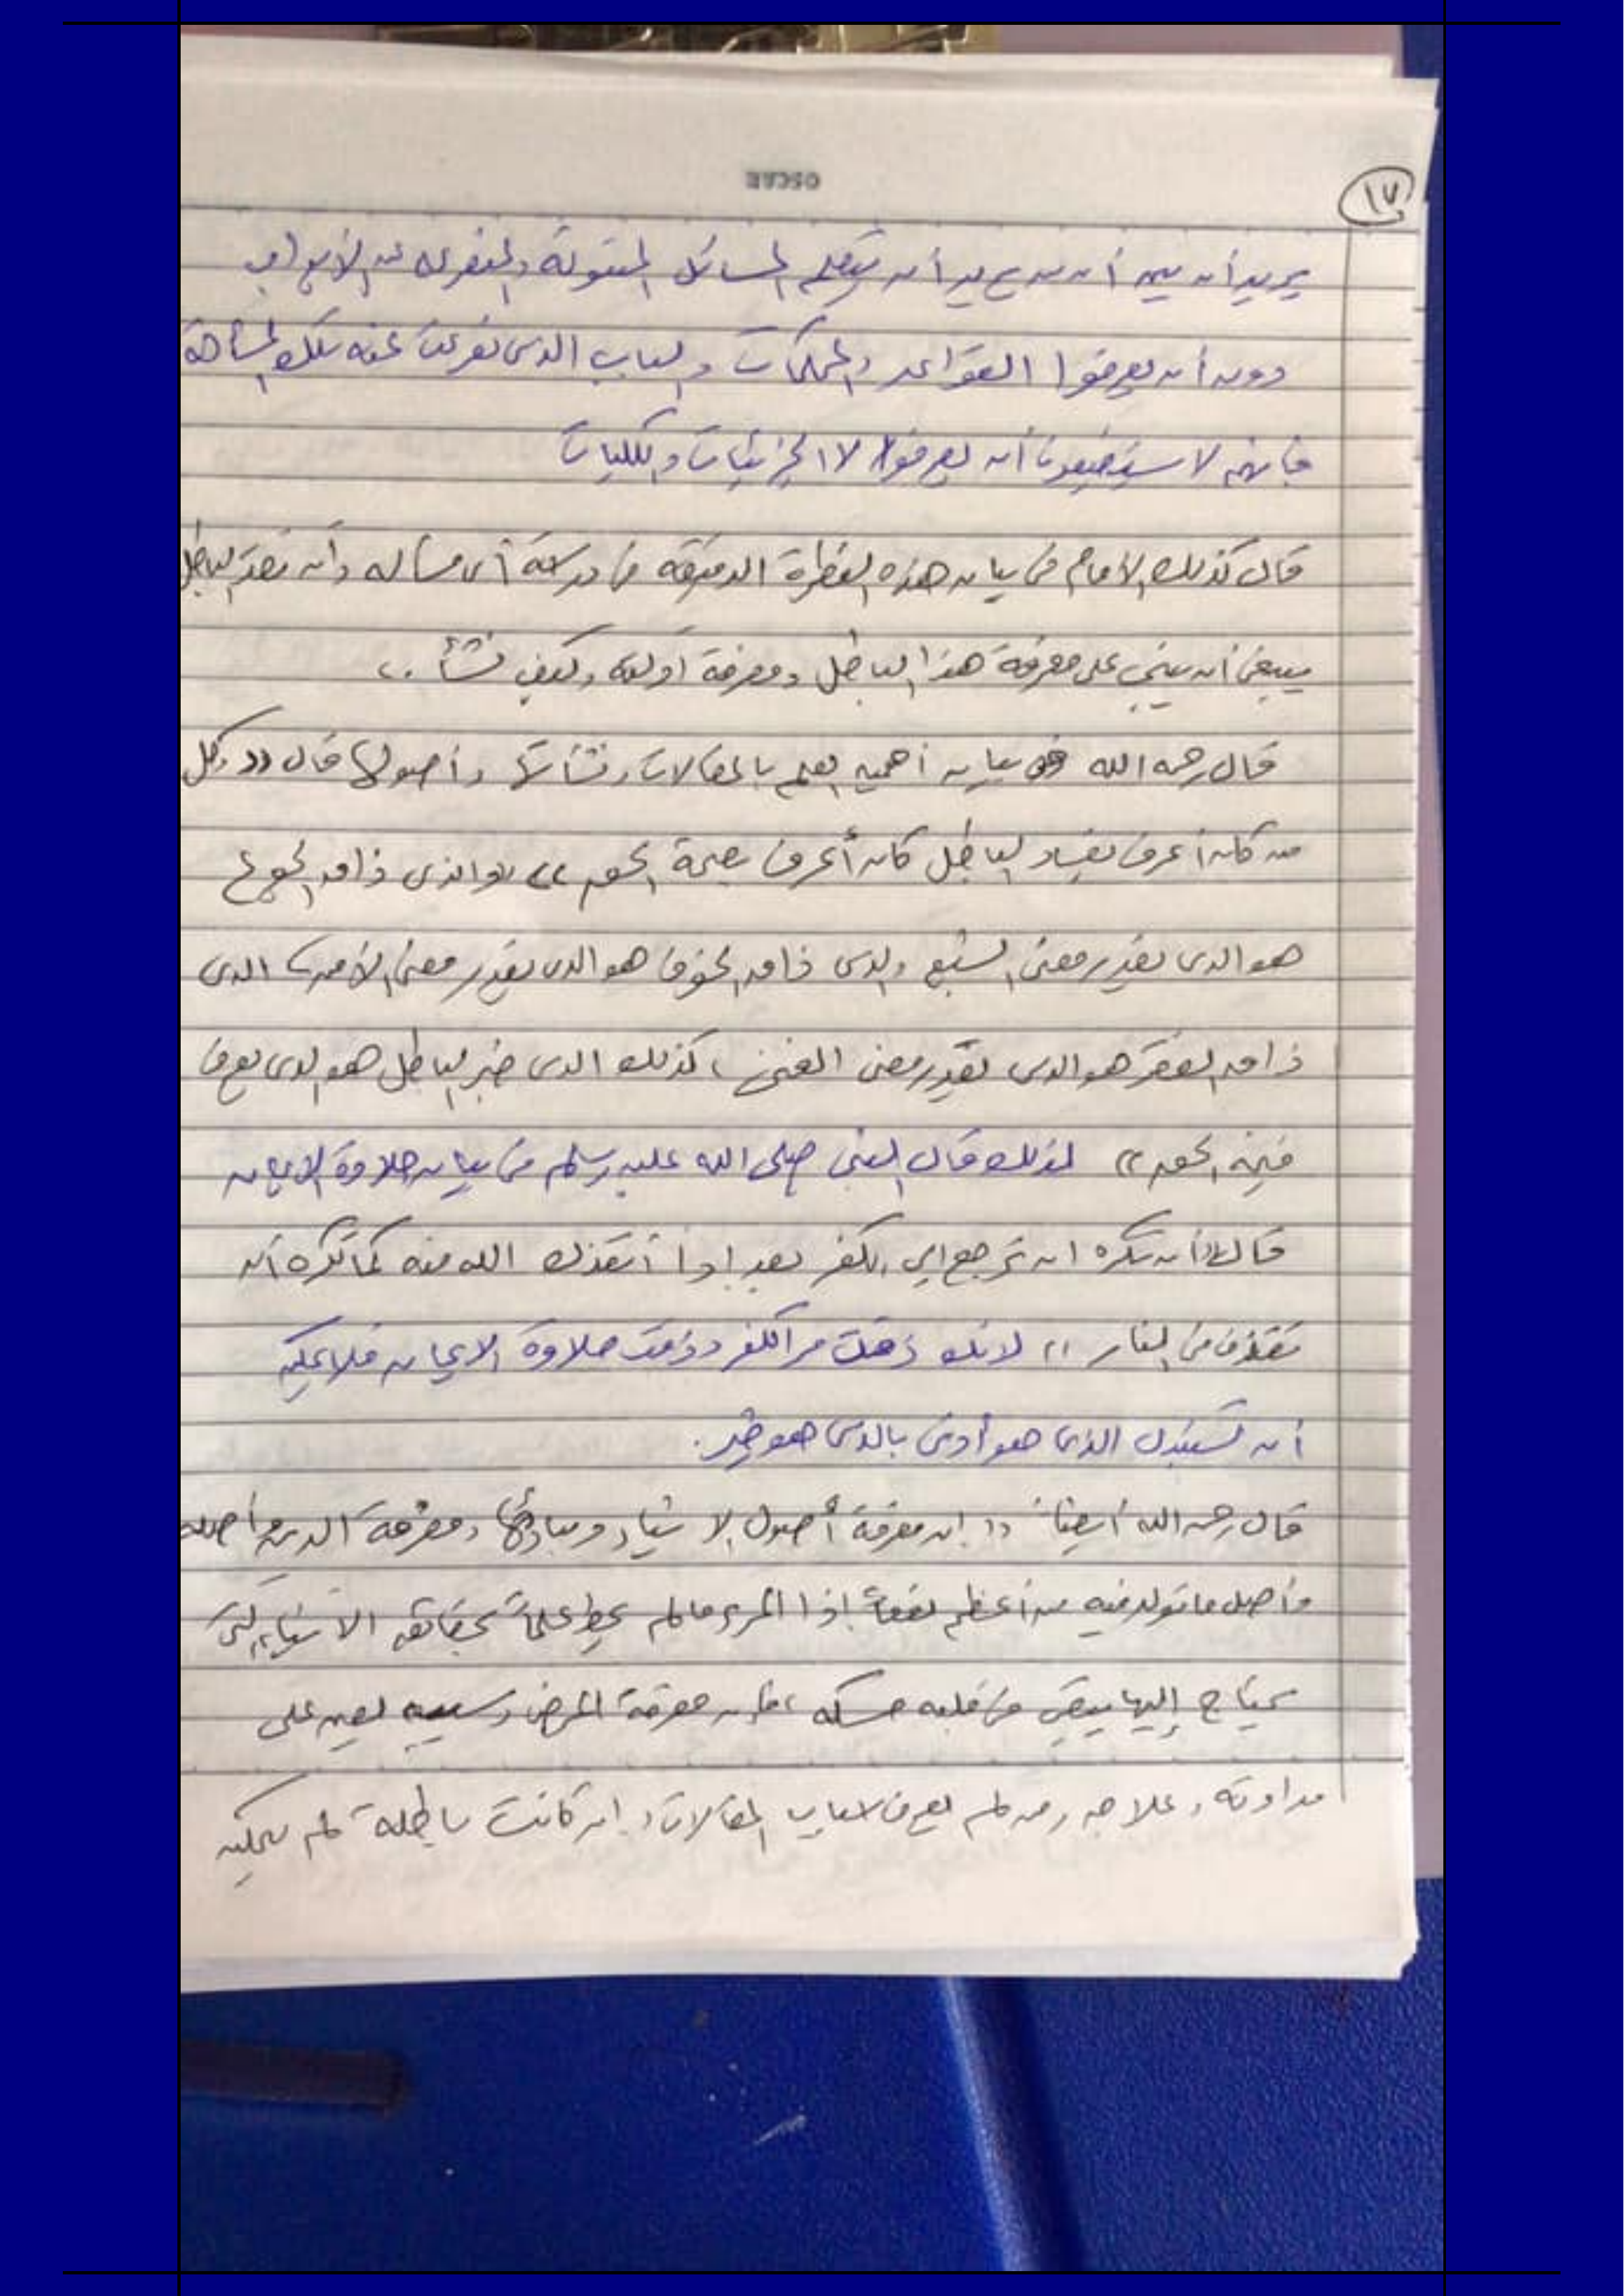 OSCAR
١٧
يريد أن يبين أن من يريد أن يتعلم المسائل المنقولة والمتفرعة عن الأبواب
دون أن يعرفوا القواعد والمحكمات والباب الذي تفرعت عنه تلك المسألة
فإنهم لا يستطيعون أن يعرفوا لا الجزئيات والكليات
قال كذلك الإمام في بيان هذه النظرة الدقيقة في دراسة أي مسألة وأن نقد الباطل
ينبغي أن يبنى على معرفة هذا الباطل ومعرفة أدلته وكيف نشأ ..
قال رحمه الله في بيان أهمية العلم بالمقالات ونشأتها وأصولها قال (( وكل
من كان أعرف بفساد الباطل كان أعرف بصحة الحق )) والذي ذاق الجوع
هو الذي يقدر معنى الشبع والذي ذاق الخوف هو الذي يقدر معنى الأمن الذي
ذاق الفقر هو الذي يقدر معنى الغنى ، كذلك الذي خبر الباطل هو الذي يعرف
قيمة الحق )) لذلك قال النبي صلى الله عليه وسلم في بيان حلاوة الإيمان
قال (( أن تكره ان ترجع إلى الكفر بعد إذا أنقذك الله منه كما تكره أن
تقذف في النار )) لانك ذقت مر الكفر وذقت حلاوة الايمان فلا يمكن
أن تستبدل الذي هو أدنى بالذي هو خير .
قال رحمه الله أيضاً (( إن معرفة أصول الاشياء ومبادئها ومعرفة الدين وأصله
وأصل ما تولد فيه من أعظم نفعاً إذا المرء ما لم يحط علماً بحقائق الأشياء التي
يحتاج إليها يبقى في قلبه حسكه ، فإن معرفة المرض وسببه يعين على
مداوته وعلاجه ومن لم يعرف اسباب المقالات وإن كانت باطلة لم يمكن